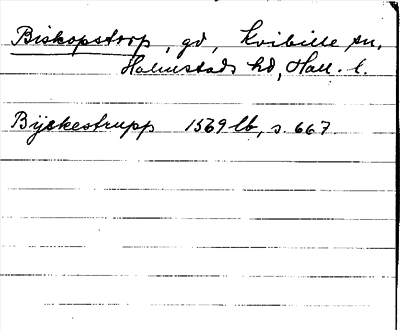 Biskopstorp, gd, Kvibille sn,
Halmstads hd, Hall. l.
Byskestrupp 1569 lb, s. 667